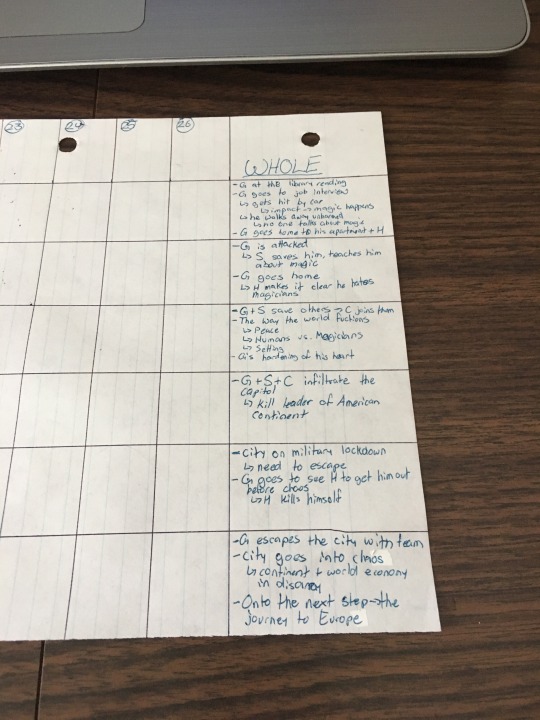 23 24 25 26
WHOLE
- G at the library reading
- G goes to job interview
↳ gets hit by car
↳ impact → magic happens
↳ he walks away unharmed
↳ no one talks about magic
- G goes home to his apartment + H
- G is attacked
↳ S saves him, teaches him
about magic
- G goes home
↳ H makes it clear he hates
magicians
- G+S save others → C joins them
- The way the world fuctions
↳ Peace
↳ Humans vs. Magicians
↳ Setting
- G's hardening of his heart
- G+S+C infiltrate the
capitol
↳ kill leader of American
continent
- City on military lockdown
↳ need to escape
- G goes to see H to get him out
before chaos
↳ H kills himself
- G escapes the city with team
- City goes into chaos
↳ continent + world economy
in disarray
- Onto the next step → the
journey to Europe